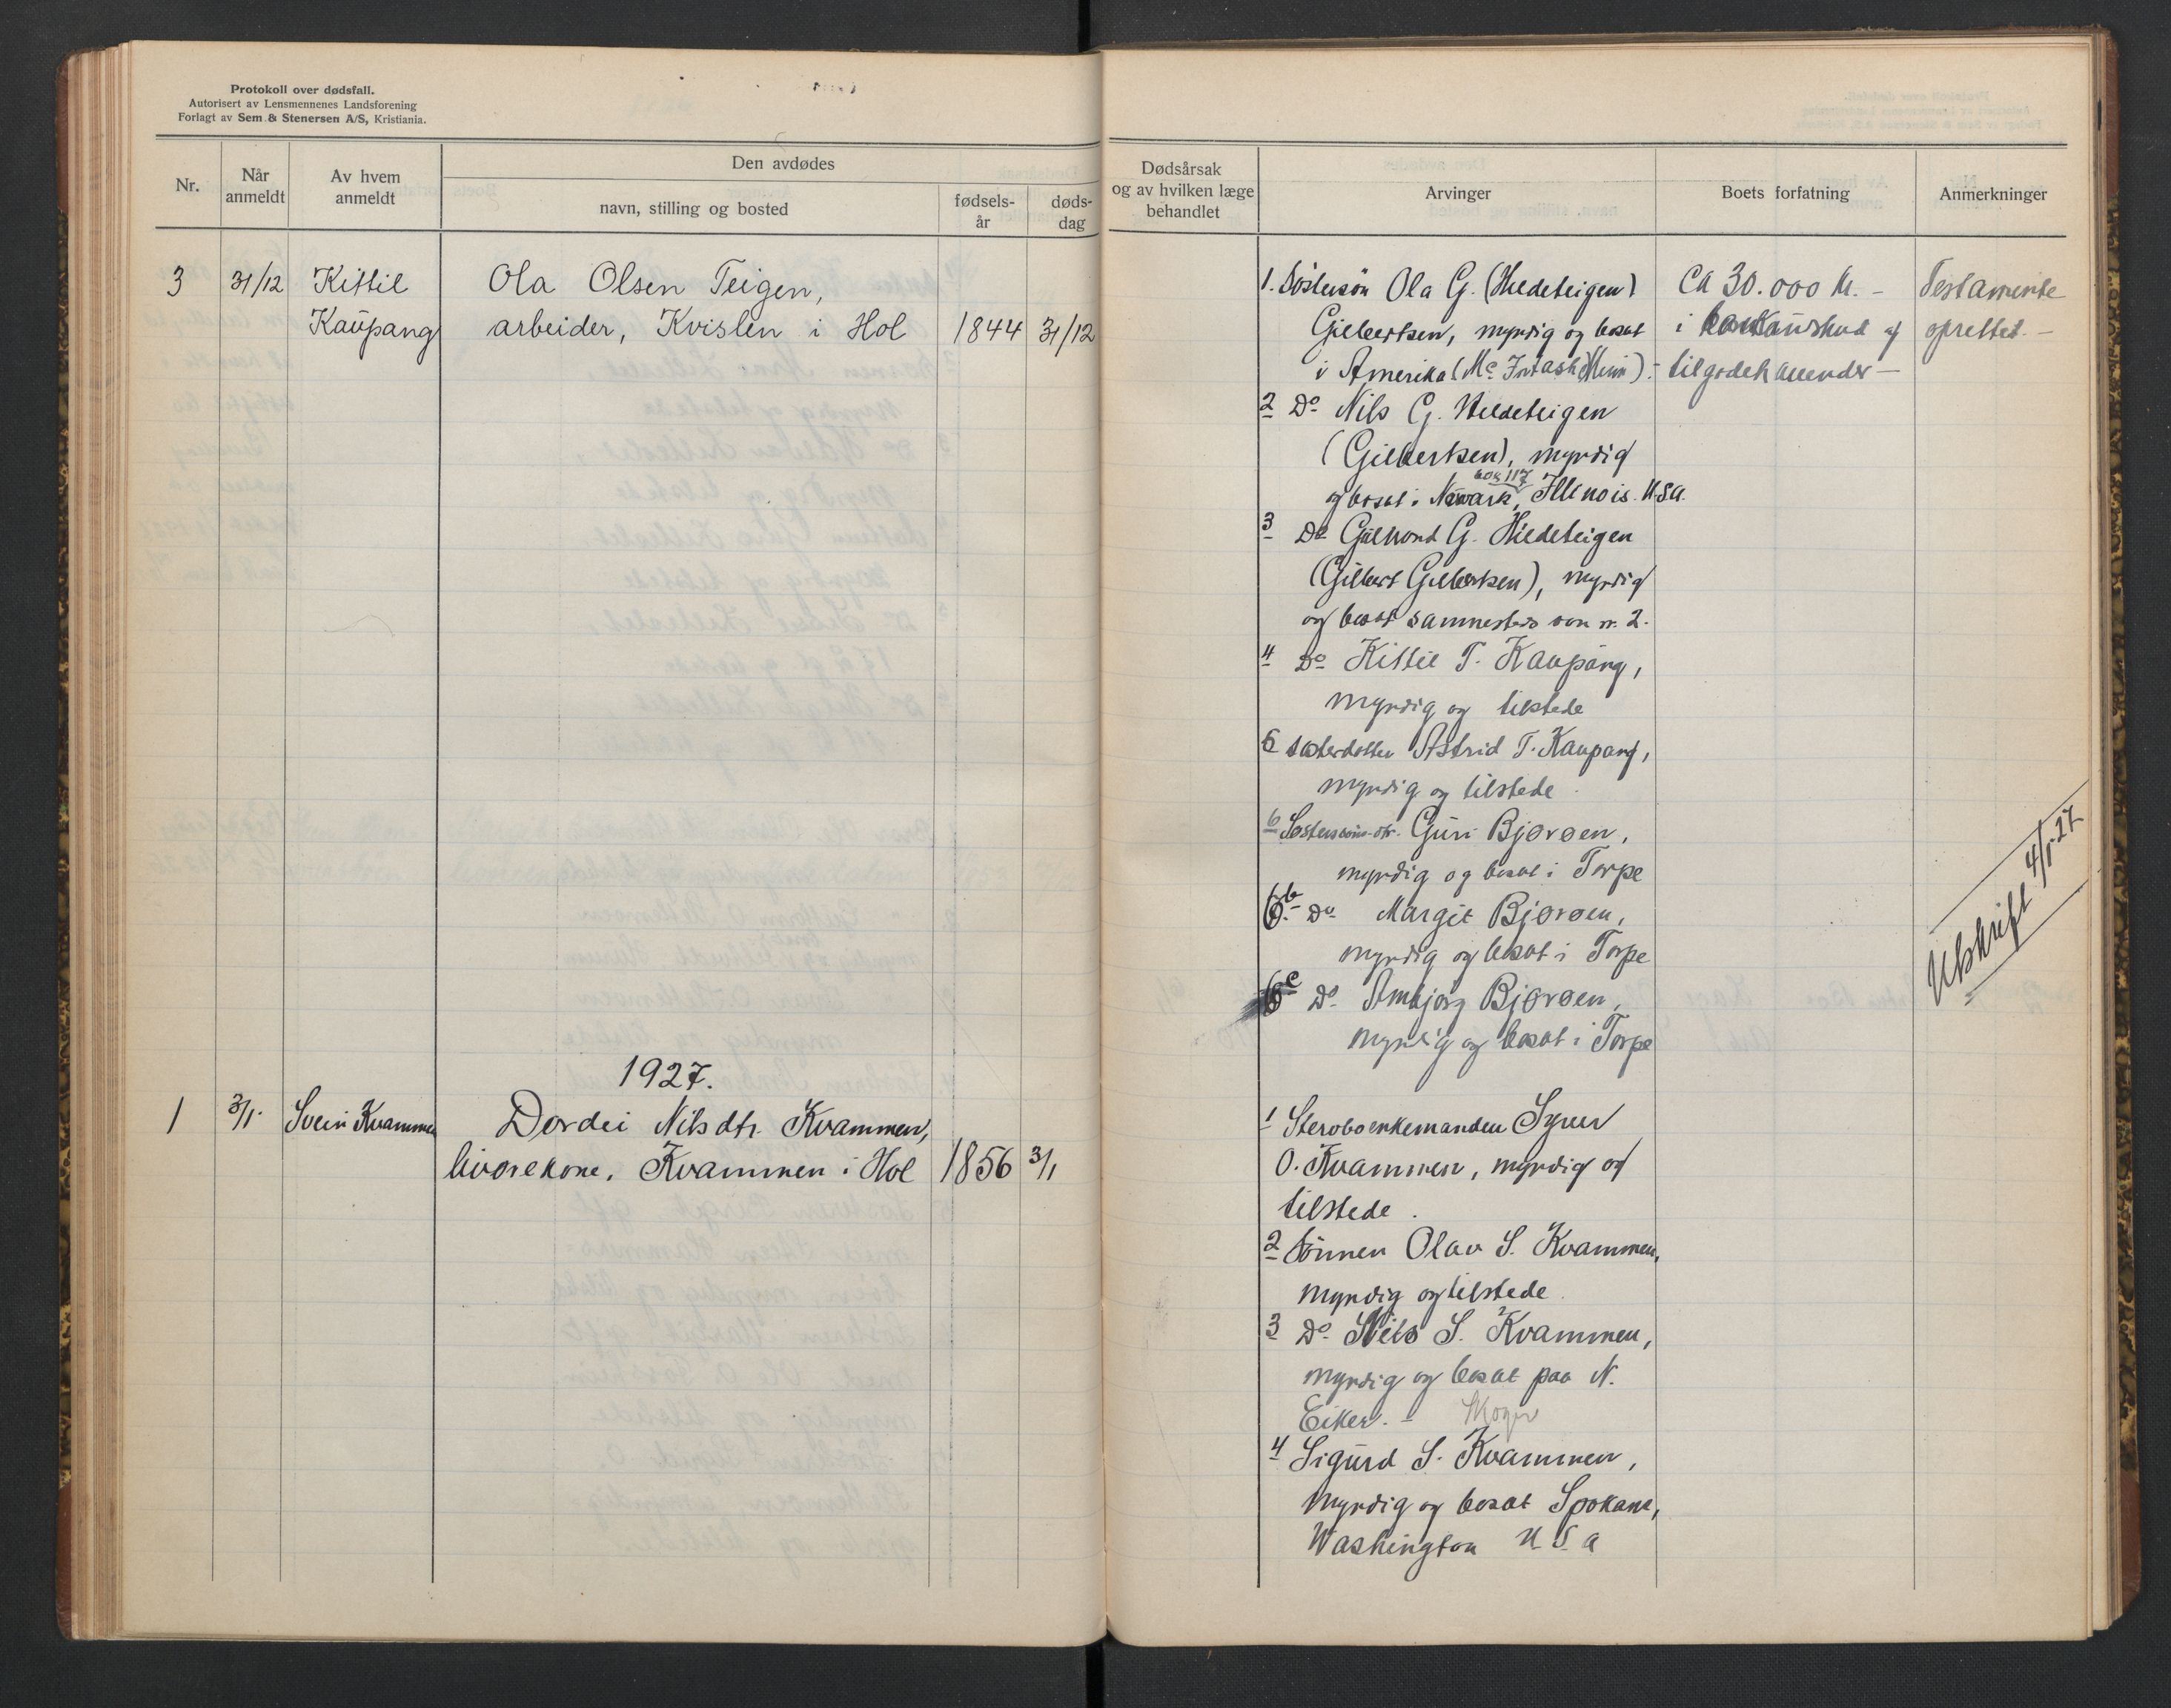 Protokoll over dødsfall.
Autorisert av Lensmennenes Landsforening
Forlagt av Sem & Stenersen A/S, Kristiania.
Nr.
Når
anmeldt
Av hvem
anmeldt
Den avdødes
navn, stilling og bosted
fødsels-
år
døds-
dag
Dødsårsak
og av hvilken læge
behandlet
Arvinger
Boets forfatning
Anmerkninger
3 31/12 Kittil Ola Olsen Teigen,
Kaupang arbeider, Kvislen i Hol 1844 31/12
1. Søstersøn Ola G. (Hildeteigen)
Gilbertsen, myndig og bosat
i Amerika (Mc Intash Minn).
2 Do Nils G. Hildeteigen
(Gilbertsen), myndig
box 117
og bosat i Newark, Illinois. U.S.A.
3 Do Gulbrand G. Hildeteigen
(Gilbert Gilbertsen), myndig
og bosat sammesteds som nr. 2.
4 Do Kittil T. Kaupang,
myndig og tilstede
5 Søsterdotter Astrid T. Kaupang,
myndig og tilstede
6 Søstersøns dtr. Guri Bjørøen,
myndig og bosat i Torpe
6b Do Margit Bjørøen,
myndig og bosat i Torpe
6c Do Ambjørg Bjørøen,
myndig og bosat i Torpe
Ca 30.000 kr. –
i og
tilgodehavender –
Testamente
oprettet. –
Utskrift 4/1-27
1927.
1 3/1. Svein Kvammen Dordei Nilsdtr. Kvammen,
livørekone, Kvammen i Hol 1856 3/1
1 Stervboenkemanden Syver
O. Kvammen, myndig og
tilstede.
2 Sønnen Olav S. Kvammen,
myndig og tilstede.
3 Do Nils S. Kvammen,
myndig og bosat paa N.
Eiker. – Skoger
4 Sigurd S. Kvammen,
myndig og bosat Spokane,
Washington U.S.A